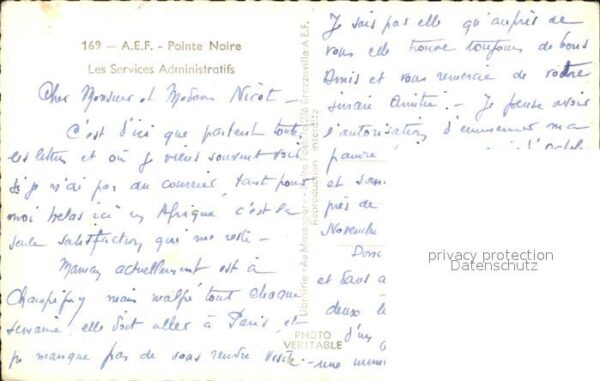 169 — A.E.F. - Pointe Noire
Les Services Administratifs
Cher Monsieur et Madame Nicot —
C'est d'ici que partent toutes
les lettres et où je viens souvent voir
si je n'ai pas du courrier, tant pour
moi helas ici en Afrique c'est la
seule satisfaction qui me reste —
Maman actuellement est à
mais malgré tout chaque
semaine elle doit aller à Paris, et
ne manque pas de vous rendre visite —
Je sais par elle qu'auprès de
vous elle trouve toujours de bons
Amis et vous remercie de votre
sincère Amitié — Je pense avoir
l'autorisation d'emmener ma
et
près de
Novembre
Donc
et dans
deux
d'un
une
Librairie « Au Messager » - Boite Postale 226 Brazzaville A.E.F.
Reproduction interdite
PHOTO
VERITABLE
privacy protection
Datenschutz